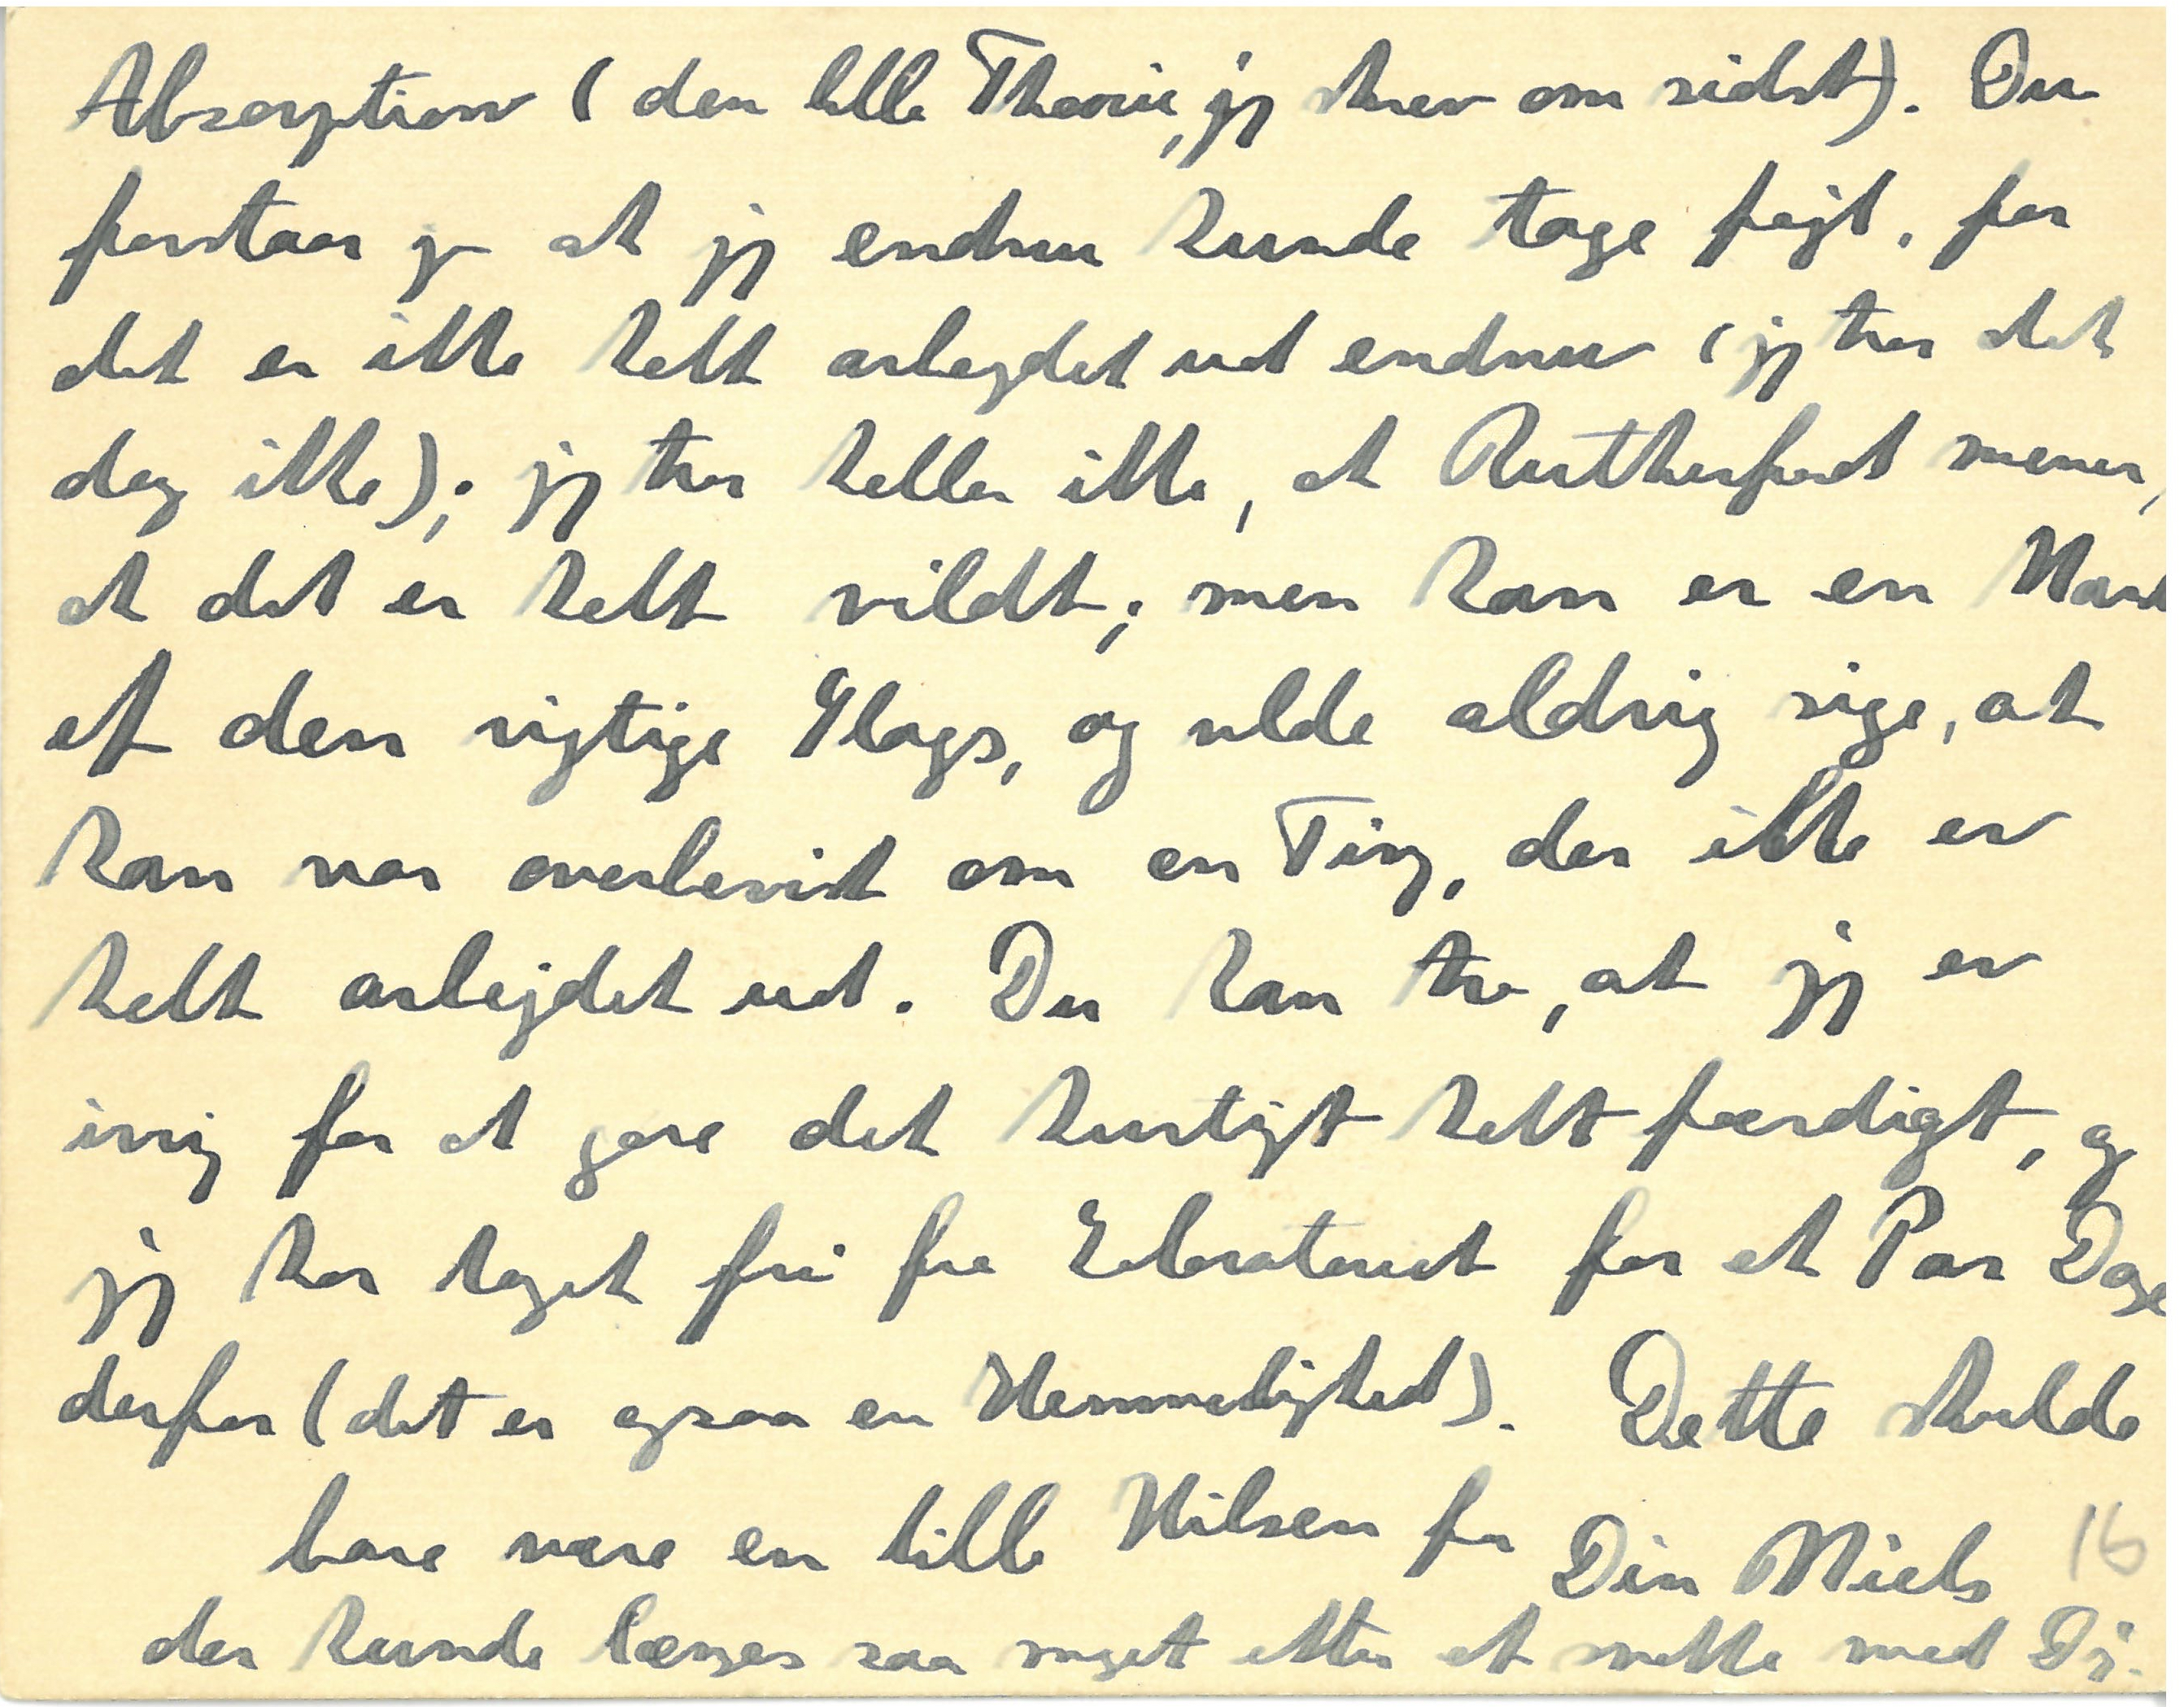 Absorption (den lille Theorie, jeg skrev om sidst). Du
forstaar jo at jeg endnu kunde tage fejl, for
det er ikke helt arbejdet ud endnu (jeg tror det
dog ikke); jeg tror heller ikke, at Rutherford mener,
at det er helt vildt; men han er en Mand
af den rigtige Slags, og vilde aldrig sige, at
han var overbevist om en Ting, der ikke er
helt arbejdet ud. Du kan tro, at jeg er
ivrig for at gøre det hurtigt helt færdigt, og
jeg har taget fri fra Laboratoriet for et Par Dage
derfor (det er ogsaa en Hemmelighed). Dette skulde
bare være en lille Hilsen fra Din Niels 16
der kunde længes saa meget efter at snakke med Dig.